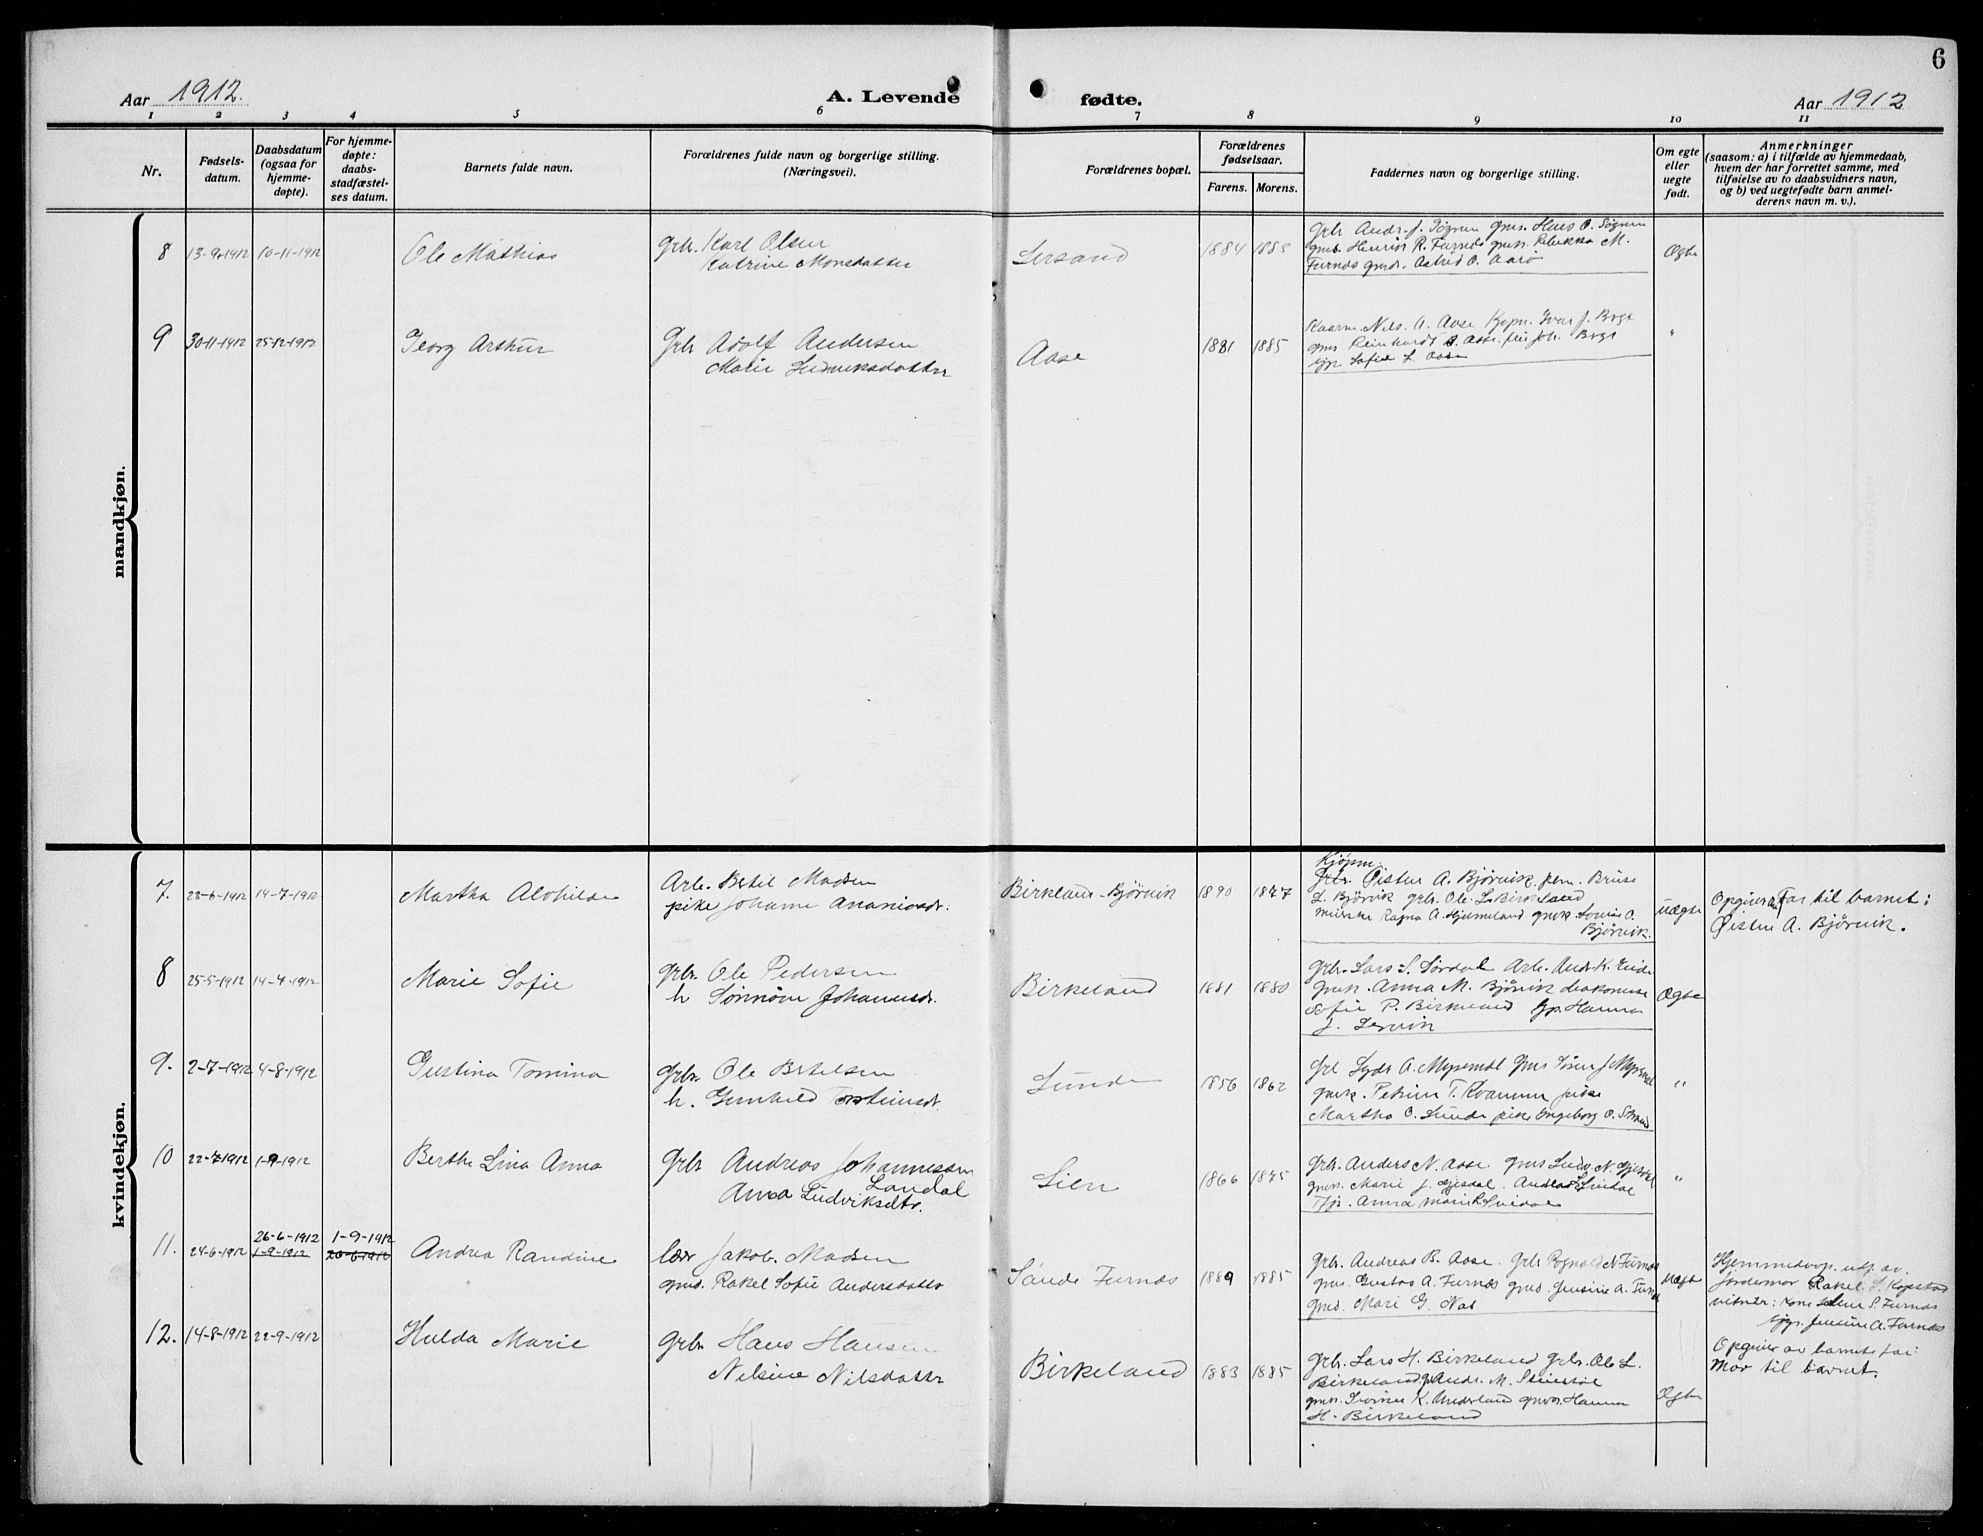 6
Aar 1912.
A. Levende
fødte.
Aar 1912
1 2 3 4 5 6 7 8 9 10 11
Nr.
Fødsels-
datum.
Daabsdatum
(ogsaa for
hjemme-
døpte).
For hjemme-
døpte:
daabs-
stadfæstel-
ses datum.
Barnets fulde navn.
Forældrenes fulde navn og borgerlige stilling.
(Næringsvei).
Forældrenes bopæl.
Forældrenes
fødselsaar.
Farens. Morens.
Faddernes navn og borgerlige stilling.
Om egte
eller
uegte
født.
Anmerkninger
(saasom: a) i tilfælde av hjemmedaab,
hvem der har forrettet samme, med
tilføielse av to daabsvidners navn,
og b) ved uegtefødte barn anmel-
derens navn m. v.).
mandkjøn.
8 13-9-1912 10-11-1912 Ole Mathias
Grbr. Karl Olsen
Katrine Monsdatter
Lersand 1884 1883
Grbr Andr. J. Søgnen gms. Hans O. Søgnen
gmb. Henrik R. Furnes gmk. Rebekka M.
Furnes gmdr. Astrid O. Aarø
Ægte
9 30-11-1912 25-12-1912 Georg Arthur
Grbr Adolf Andersen
Marie Ludviksdatter
Aase 1881 1885
Nils. A. Aase Ivar J. Bogt
gms Reinhardt Aase Joh. Bogt
Sofie L. Aase
"
kvindekjøn.
7. 14-7-1912 Martha Alvhilde
Arb. Bertil Madsen
pike Johanne Ananiasdr.
Birkeland-Bjørvik 1890 1887
Kjøpm.
Grbr. Øisten A. Bjørvik
L. Bjørvik grbr. Ole L. Birkeland
Ragna A. Hjelmeland gmk. Lovise A.
Bjørvik.
Uægte
Opgiven Far til barnet:
Øisten A. Bjørvik.
8 25-5-1912 14-7-1912 Marie Sofie
Grbr. Ole Pedersen
h Sønnøve Johannesdr.
Birkeland 1881 1880
Grbr. Lars S. Sørdal Arb. Andr. K. Eide
gmk. Anna M. Bjørvik diakonisse
Sofie P. Birkeland Gp. Hanna
J. Lervik
Ægte
9. 2-7-1912 4-8-1912 Gustina Tomina
Grbr. Ole Bertelsen
h. Gunhild Torsteinsdr.
Sunde 1856 1862
A. Myrmel Gms Sören J. Myrmel
gmk. Petrine T. Kvamme pike
Martha O. Sunde pike Engeborg O. Strand
"
10 22-7-1912 1-9-1912 Berthe Lina Anna
Grbr Andreas Johannessen
Landal
Anna Ludviksdtr.
Lien 1866 1875
Grbr. Anders N. Aase gms Ludv. N. Gjesdal
gmk. Marie J. Gjesdal. Andreas Svidal
Tjp. Anna Marie R. Svidal
"
11. 24-6-1912 26-6-1912 1-9-1912
1-9-1912 26-6-1912 Andrea Randine
lær Jakob. Madsen
gmd. Rakel Sofie Andersdatter
Sande Furnes 1889 1885
Grbr. Andreas B. Aase Grbr Rognald N. Furnes
gms. Gustav A. Furnes gmd. Jensine A. Furnes
gmd. Mari G. Nes
Uægte
Hjemmedøp. utf. av
jordemor Rakel S. Kopstad
vitner: Kone Lene S. Furnes
Gjp. Jensine A. Furnes
Opgiver av barnets far:
Mor til barnet.
12. 14-8-1912 22-9-1912 Hulda Marie
Grbr Hans Hansen
Nilsine Nilsdatter
Birkeland 1883 1885
Grbr. Lars H. Birkeland Grbr. Ole L.
Birkeland Andr. M. Steiestøl
gmk. K. Underland gmd. Hanna
H. Birkeland
Ægte